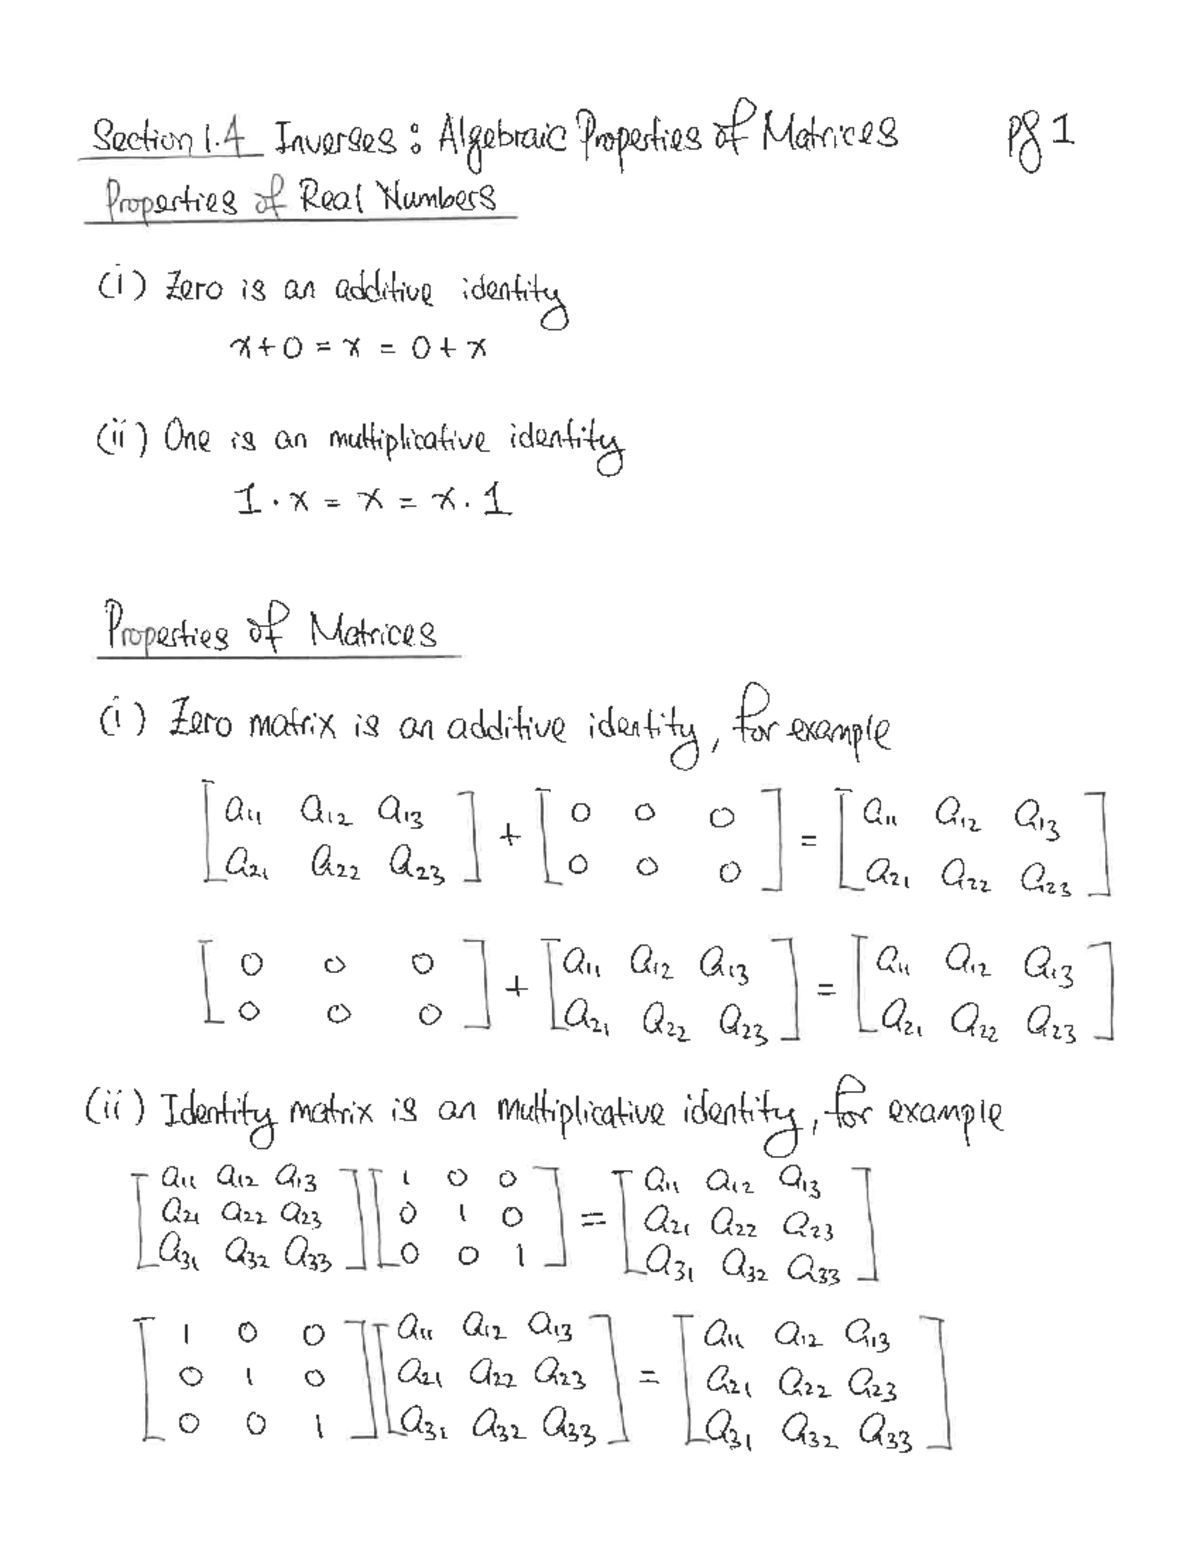 Section 1.4 Inverses : Algebraic Properties of Matrices pg 1
Properties of Real Numbers
(i) Zero is an additive identity
x+0 = x = 0+x
(ii) One is an multiplicative identity
1·x = x = x.1
Properties of Matrices
(i) Zero matrix is an additive identity, for example
[a11 a12 a13] + [0 0 0] = [a11 a12 a13]
[a21 a22 a23] [0 0 0] [a21 a22 a23]
[0 0 0] + [a11 a12 a13] = [a11 a12 a13]
[0 0 0] [a21 a22 a23] [a21 a22 a23]
(ii) Identity matrix is an multiplicative identity, for example
[a11 a12 a13] [1 0 0] [a11 a12 a13]
[a21 a22 a23] [0 1 0] = [a21 a22 a23]
[a31 a32 a33] [0 0 1] [a31 a32 a33]
[1 0 0] [a11 a12 a13] [a11 a12 a13]
[0 1 0] [a21 a22 a23] = [a21 a22 a23]
[0 0 1] [a31 a32 a33] [a31 a32 a33]